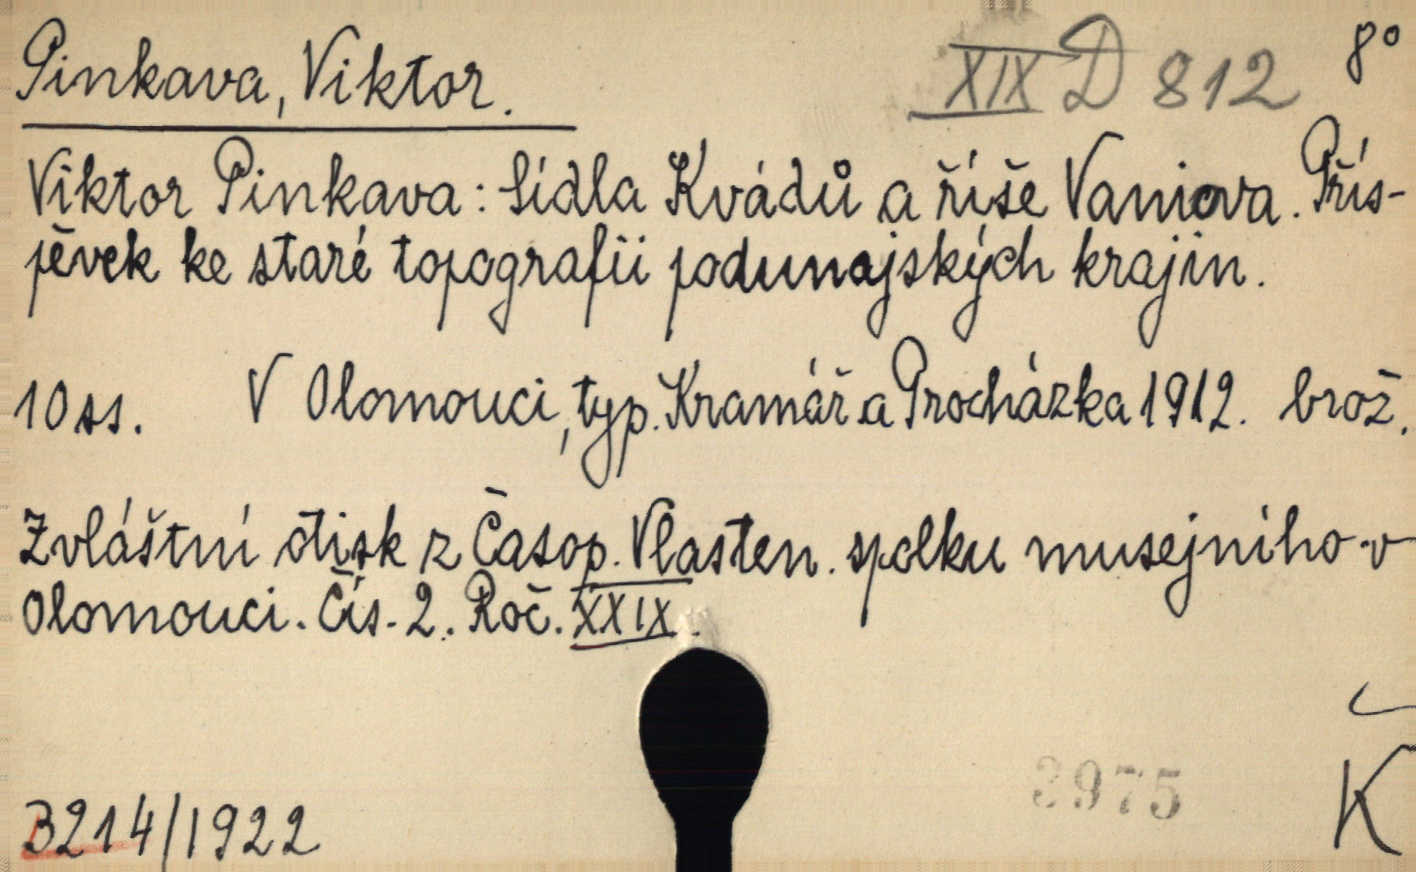 Pinkava, Viktor. XIX D 812 8°
Viktor Pinkava: Sídla Kvádů a říše Vaniova. Přís-
pěvek ke staré topografii podunajských krajin.
10 ss. V Olomouci, typ. Kramář a Procházka 1912. brož.
Zvláštní otisk z Časop. Vlasten. spolku musejního v
Olomouci. Čís. 2. Roč. XXIX.
3975
Ǩ
3214/1922